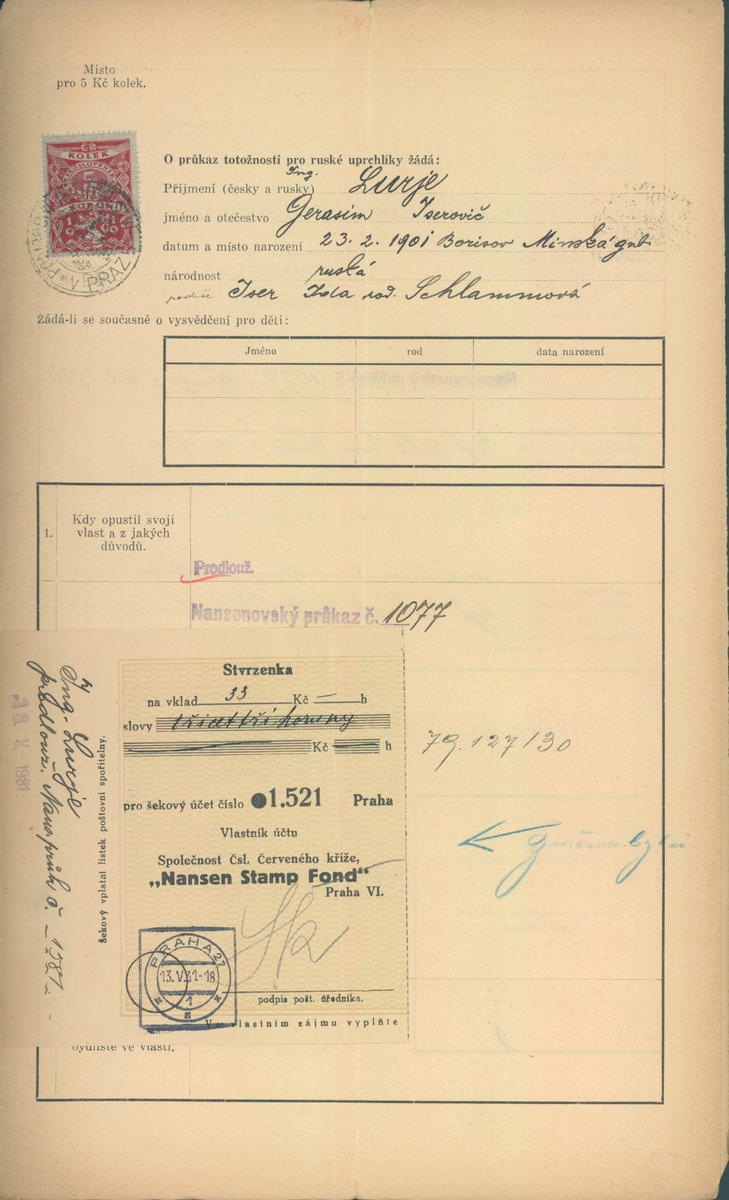 Místo
pro 5 Kč kolek.
ČR
KOLEK
5
KORUN
V PRAZ
O průkaz totožnosti pro ruské uprchlíky žádá:
Ing.
Příjmení (česky a rusky) Lurje
jméno a otečestvo Gerasim Iserovič
datum a místo narození 23. 2. 1901 Borisov Minská gub
národnost ruská
rodiče Iser Ida roz. Schlammová
Žádá-li se současně o vysvědčení pro děti:
Jméno rod data narození
1. Kdy opustil svoji
vlast a z jakých
důvodů.
Prodlouž.
Nansonovský průkaz č. 1077
Stvrzenka
na vklad 33 Kč — h
slovy třicettři koruny
Kč h
pro šekový účet číslo ●1.521 Praha
Vlastník účtu
Společnost Čsl. Červeného kříže,
„Nansen Stamp Fond"
Praha VI.
PRAHA 27
13.V.31-18
1
podpis pošt. úředníka.
V vlastním zájmu vyplňte
Šekový vplatní lístek poštovní spořitelny.
Ing. Lurje
prodlouž. Nans. průk č.
79.127/30
Změna bytu
bydliště ve vlasti.